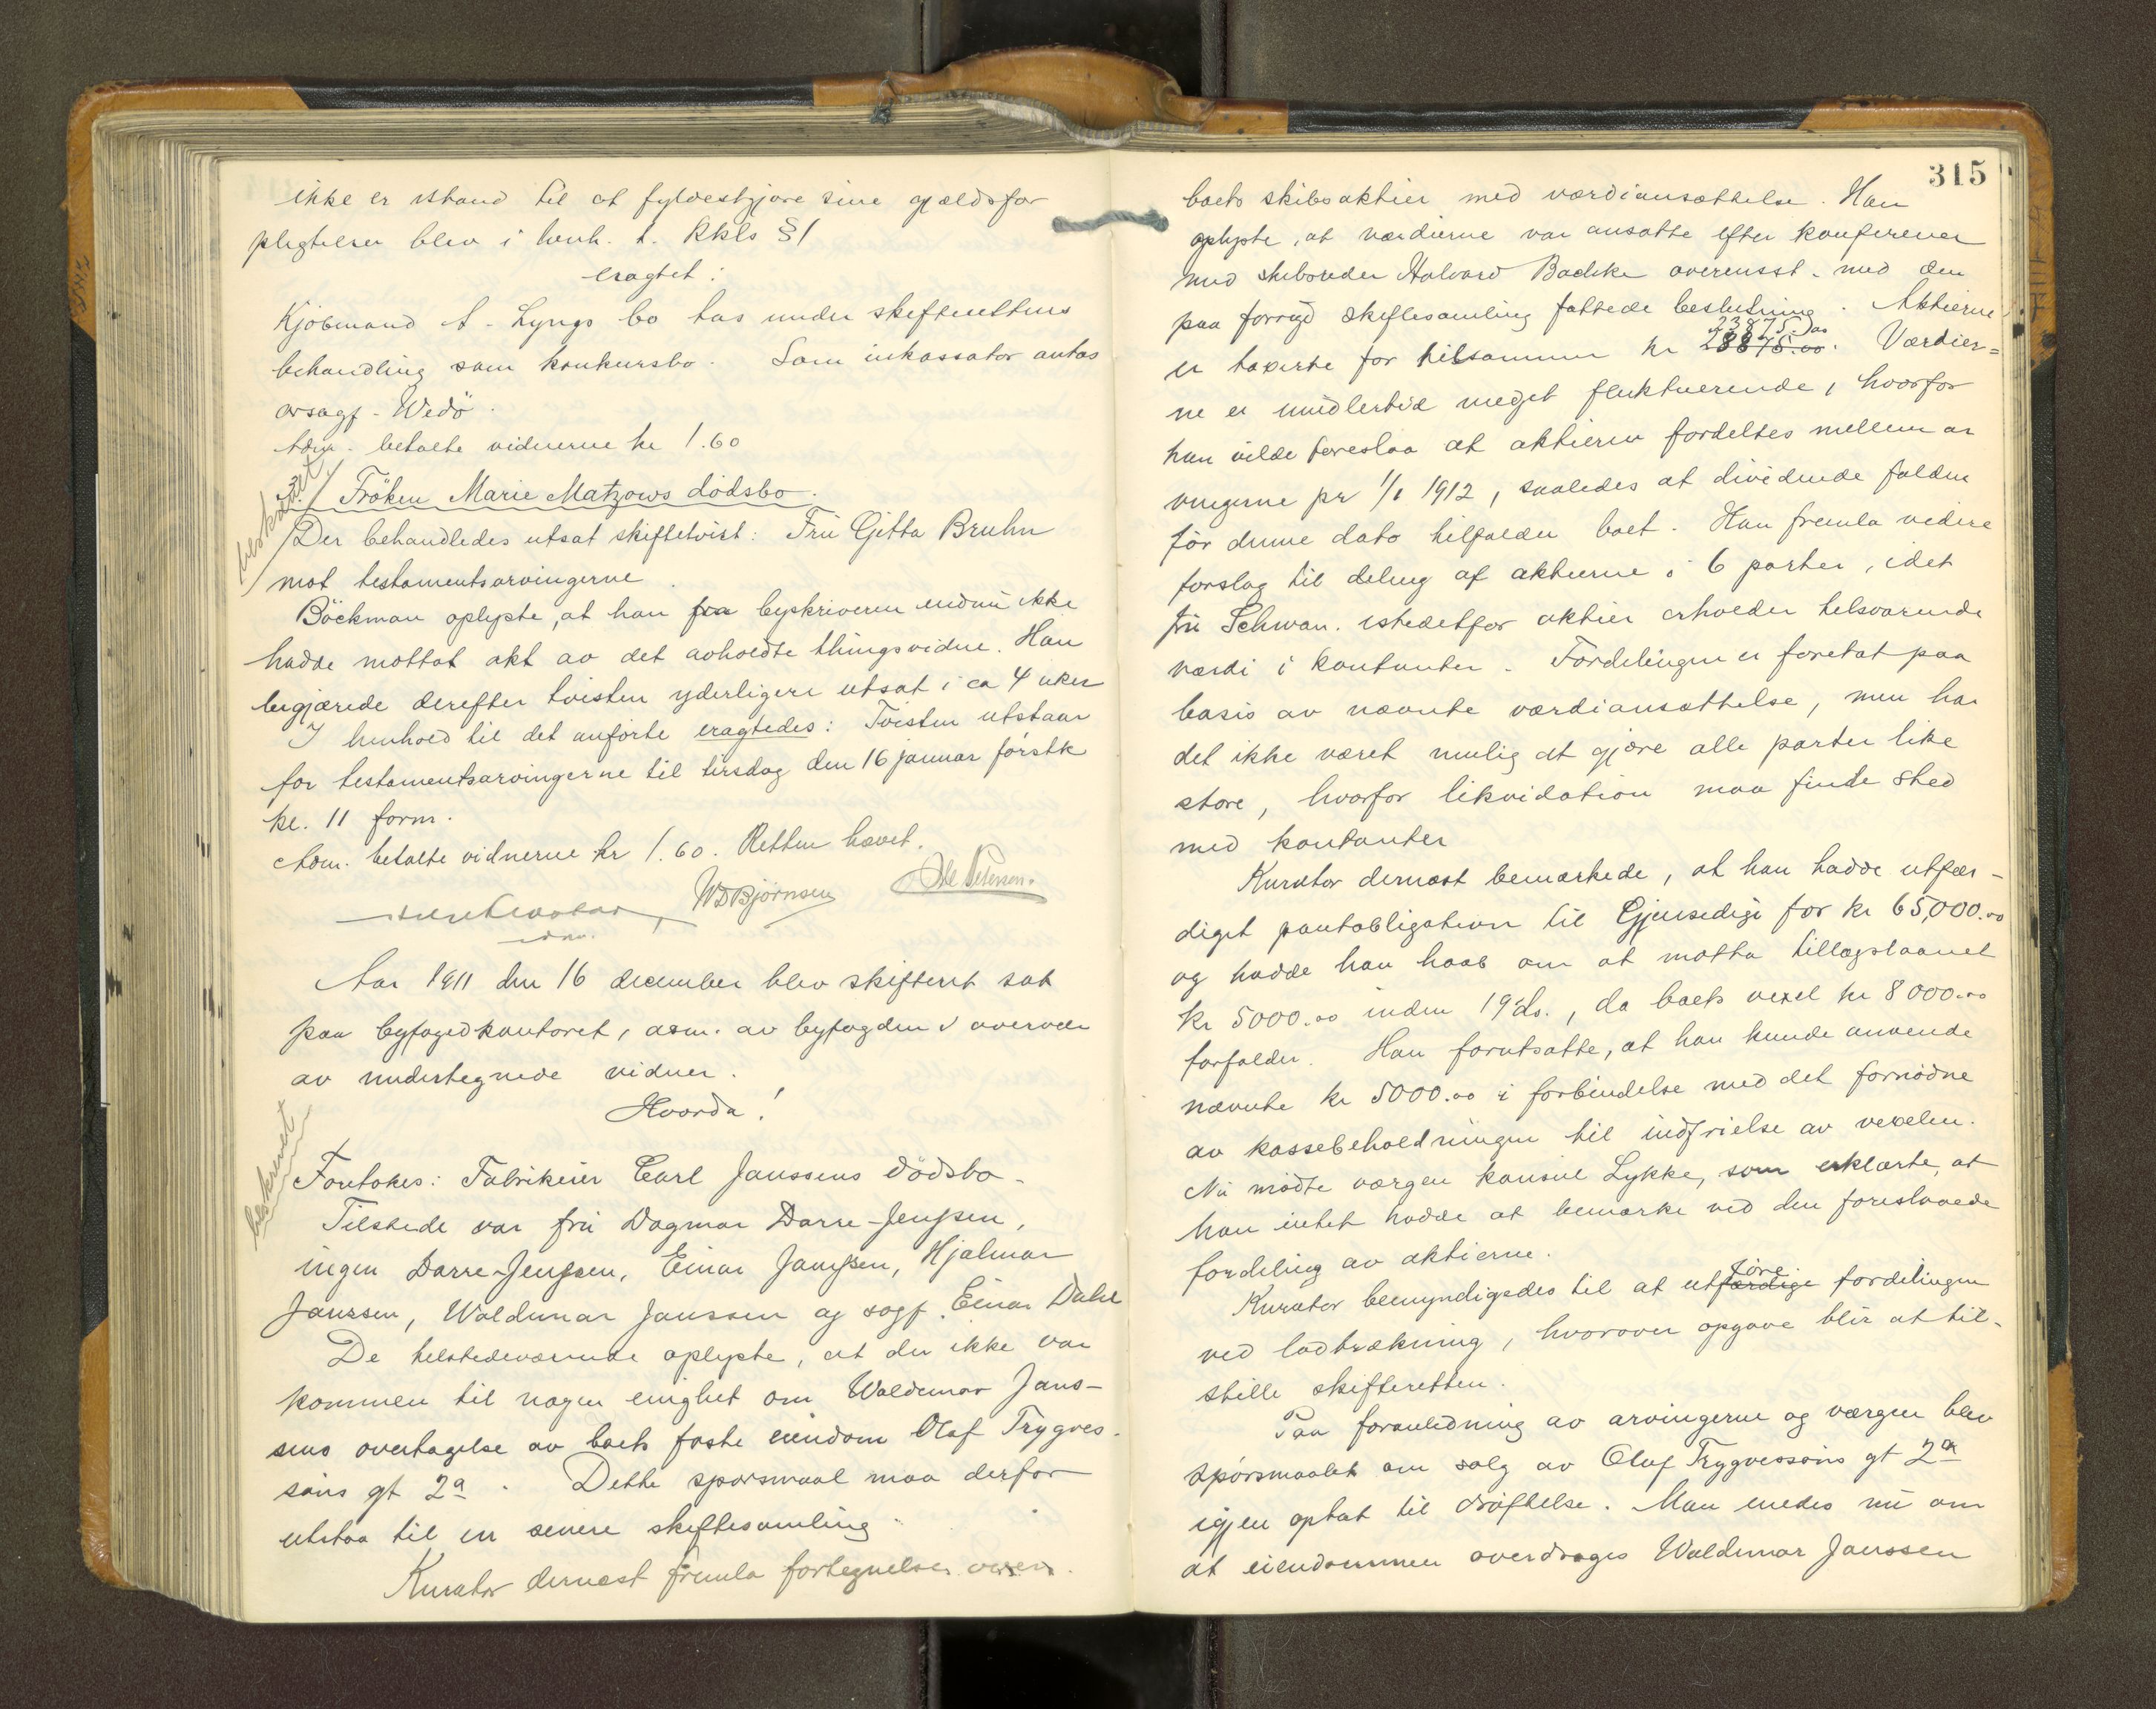 ikke er istand til at fyldestgjøre sine gjældsfor
pligtelser blev i henh. t. Kkls §1
eragtet:
Kjöbmand A. Lyngs bo tas under skifterettens
behandling som konkursbo. Som inkassator antas
orsagf. Wedö.
Adm. betalte vidnerne kr 1.60
beskrevet
3./ Fröken Marie Matzows dödsbo.
Der behandledes utsat skiftetvist: Frü Gitta Bruhn
mot testamentsarvingerne.
Böckman oplyste, at han fra byskriveren endnu ikke
hadde mottat akt av det avholdte thingsvidne. Han
begjærede derefter tvisten yderligere utsat i ca 4 uker
I henhold til det anførte eragtedes: Tvisten utstaar
for testamentsarvingerne til tirsdag den 16 januar førstk
kl. 11 form.
Adm. betalte vidnerne kr 1.60. Retten hævet.
WDBjörnsen Ole Petersen.
Aar 1911 den 16 december blev skifteret sat
paa byfogedkontoret, adm. av byfogden i overvær
av undertegnede vidner.
Hvorda!
beskrevet
Foretokes: Fabrikeier Carl Janssens dödsbo.
Tilstede var frü Dagmar Darre-Jenssen,
ingen Darre-Jenssen, Einar Janssen, Hjalmar
Janssen, Waldemar Janssen og sagf. Einar Dahl
De tilstedeværende oplyste, at der ikke var
kommen til nogen enighet om Waldemar Jans-
sens overtagelse av boets faste eiendom Olaf Trygves-
søns gt 2a. Dette spørsmaal maa derfor
utstaa til en senere skiftesamling.
Kurator dernæst fremla fortegnelse over
315
boets skibsaktier med værdiansættelse. Han
oplyste, at værdierne var ansatte efter konferencer
med skibsreder Halvard Bachke overensst. med den
paa forrige skiftesamling fattede beslutning. Aktierne
23875.00
er taxerte for tilsammen kr 28875.00. Værdier=
ne er imidlertid meget fluktuerende, hvorfor
han vilde foreslaa at aktierne fordeltes mellem ar
vingerne pr 1/1 1912, saaledes at dividende falden
før denne dato tilfalder boet. Han fremla videre
forslag til deling af aktierne i 6 parter, idet
frü Schwan. istedetfor aktier erholder tilsvarende
værdi i kontanter. Fordelingen er foretat paa
basis av nævnte værdiansættelse, men har
det ikke været mulig at gjøre alle parter like
store, hvorfor likvidation maa finde sted
med kontanter
Kurator dernæst bemærkede, at han hadde utfær-
diget pantobligation til Gjensidige for kr 65,000.00
og hadde han haab om at motta tillægslaanet
kr 5000.00 inden 19 ds., da boets vexel kr 8000.00
forfalder. Han forutsatte, at han kunde anvende
nævnte kr 5000.00 i forbindelse med det fornødne
av kassebeholdningen til indfrielse av vexelen.
Nu mødte værgen konsul Lykke, som erklærte, at
han intet hadde at bemærke ved den foreslaaede
fordeling av aktierne.
före
Kurator bemyndigedes til at utfærdige fordelingen
ved lodtrækning, hvorover opgave blir at til-
stille skifteretten.
Paa foranledning av arvingerne og værgen blev
spørsmaalet om salg av Olaf Trygvessøns gt 2a
igjen optat til drøftelse. Man enedes nu om
at eiendommen overdrages Waldemar Janssen